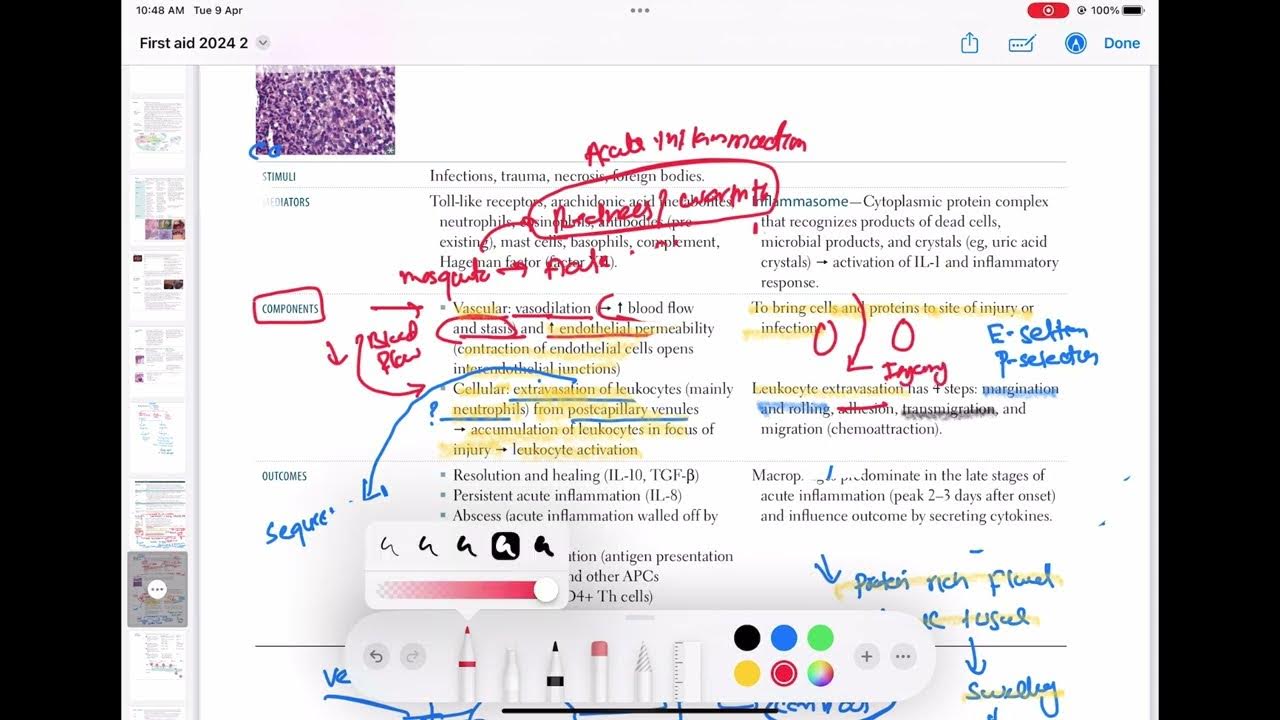 10:48 AM Tue 9 Apr
100%
First aid 2024 2
Done
Acute
STIMULI
Infections, trauma, necrosis, foreign bodies.
MEDIATORS
Toll-like receptors, arachidonic acid metabolites,
neutrophils, eosinophils, antibodies (pre-
existing), mast cells, basophils, complement,
Hageman factor
Inflammasome—Cytoplasmic protein complex
that recognizes products of dead cells,
microbial products, and crystals (eg, uric acid
crystals) → activation of IL-1 and inflammatory
response.
Redness / warmth
COMPONENTS
Vascular: vasodilation (→ ↑ blood flow
and stasis) and ↑ endothelial permeability
(contraction of endothelial cells opens
interendothelial junctions)
Cellular: extravasation of leukocytes (mainly
neutrophils) from postcapillary venules
→ accumulation of leukocytes in focus of
injury → leukocyte activation
To bring cells and proteins to site of injury or
infection
Leukocyte extravasation has 4 steps: margination
and rolling, adhesion, transmigration, and
migration (chemoattraction).
Blood
Flow
Injury
E-selectin
P-selectin
?
OUTCOMES
Resolution and healing (IL-10, TGF-β)
Persistent acute inflammation (IL-8)
Abscess (acute inflammation walled off by
tion (antigen presentation
nd other APCs
D4+ Th cells)
Macrophages predominate in the late stages of
acute inflammation (peak 2–3 days after onset)
and influence outcome by secreting cytokines.
Protein rich Fluid
Swelling